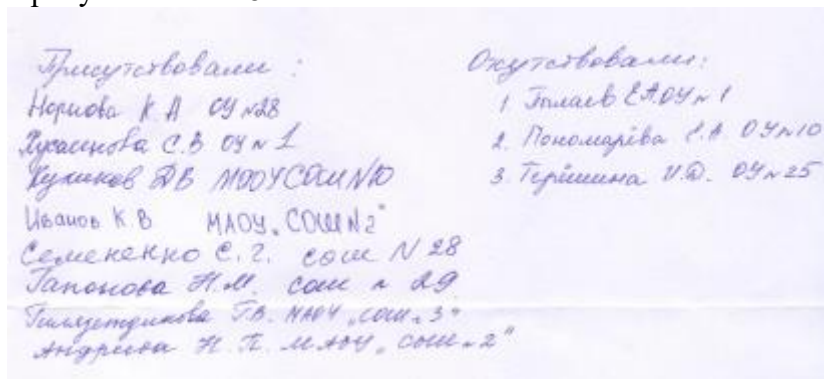 Присутствовали:
К.А ОУ №28
С.В ОУ № 1
Куликов ДВ МАОУ СОШ №10
Иванов К.В МАОУ „СОШ №2"
Семененко С.Г. сош N 28
Гапонова Н.М. сош № 29
Т.В. МАОУ „СОШ № 3"
Андреева Н.П. МАОУ „СОШ № 2"
Отсутствовали:
1 Е.А. ОУ № 1
2. Пономарёва Е.А ОУ №10
3. Терёшина И.Ю. ОУ № 25